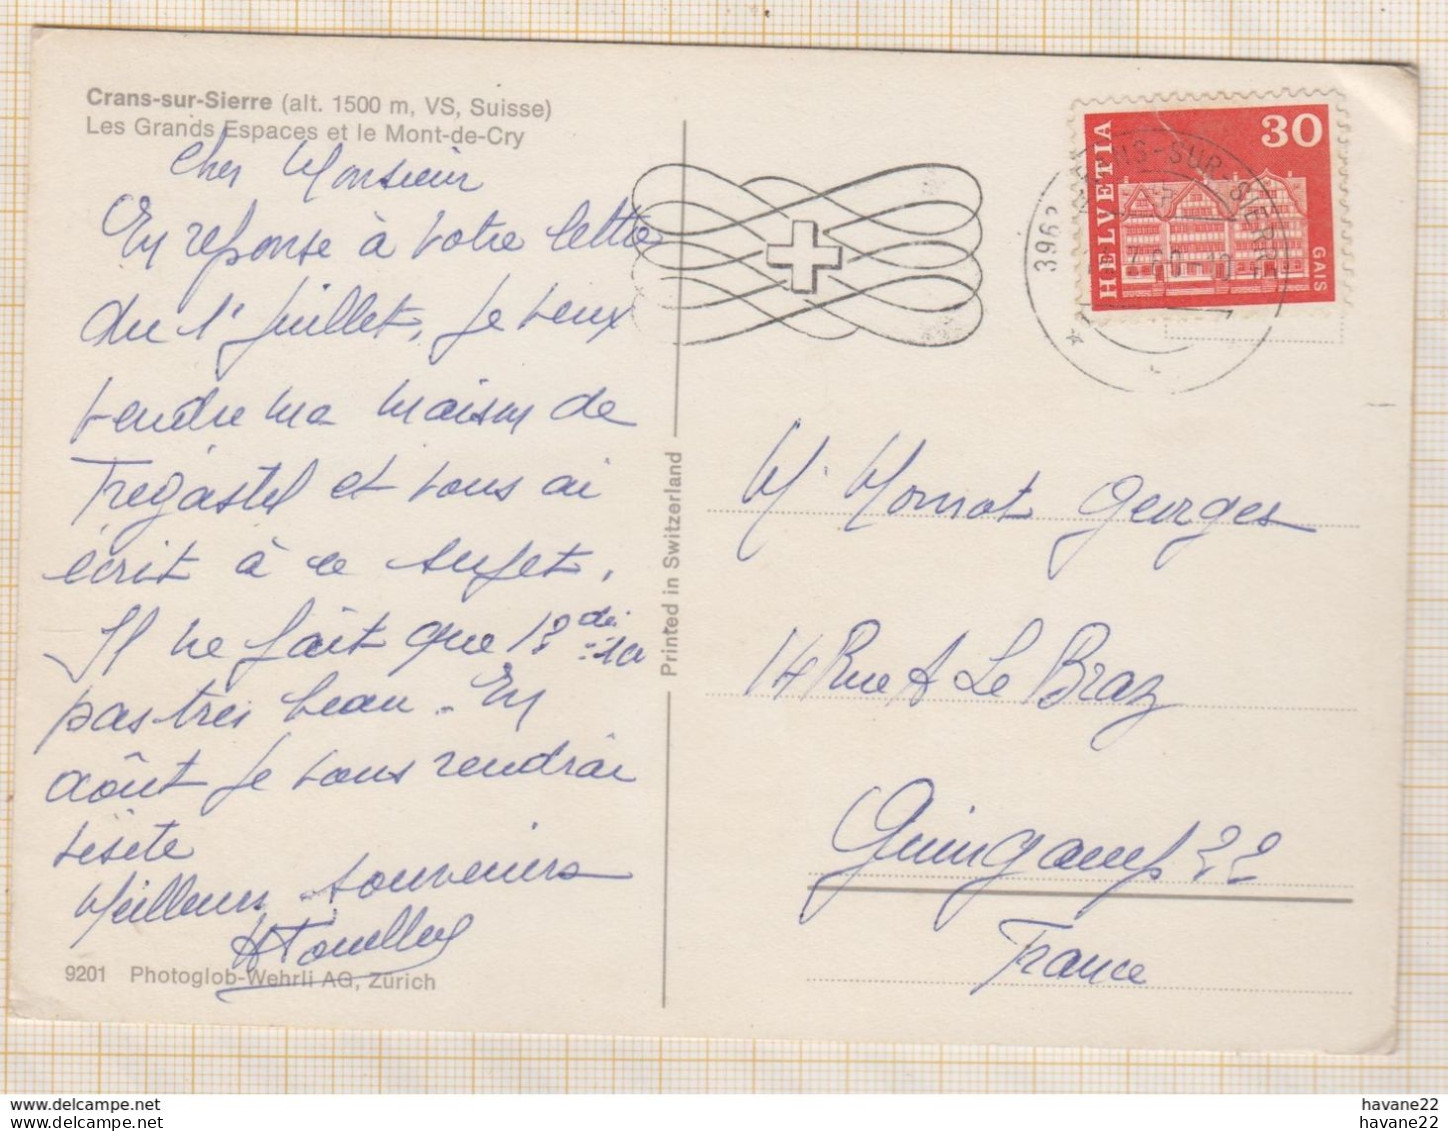 Crans-sur-Sierre (alt. 1500 m, VS, Suisse)
Les Grands Espaces et le Mont-de-Cry
Cher Monsieur
En reponse à votre lettre
du 1er Juillet, je veux
vendre ma maison de
Tregastel et vous ai
écrit à ce sujet.
Il ne fait que 12
pas très beau. En
août je vous rendrai
visite
Meilleurs souvenirs
9201 Photoglob-Wehrli AG, Zürich
Printed in Switzerland
HELVETIA
30
GAIS
3963 CRANS-SUR-SIERRE
M. Mornot Georges
14 Rue A Le Braz
Guingamp 22
France
havane22
havane22
havane22
havane22